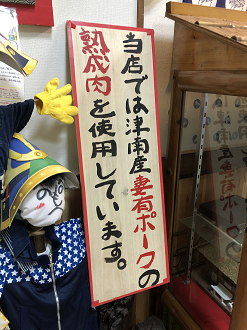 当店では津南産妻有ポークの
熟成肉を使用しています。